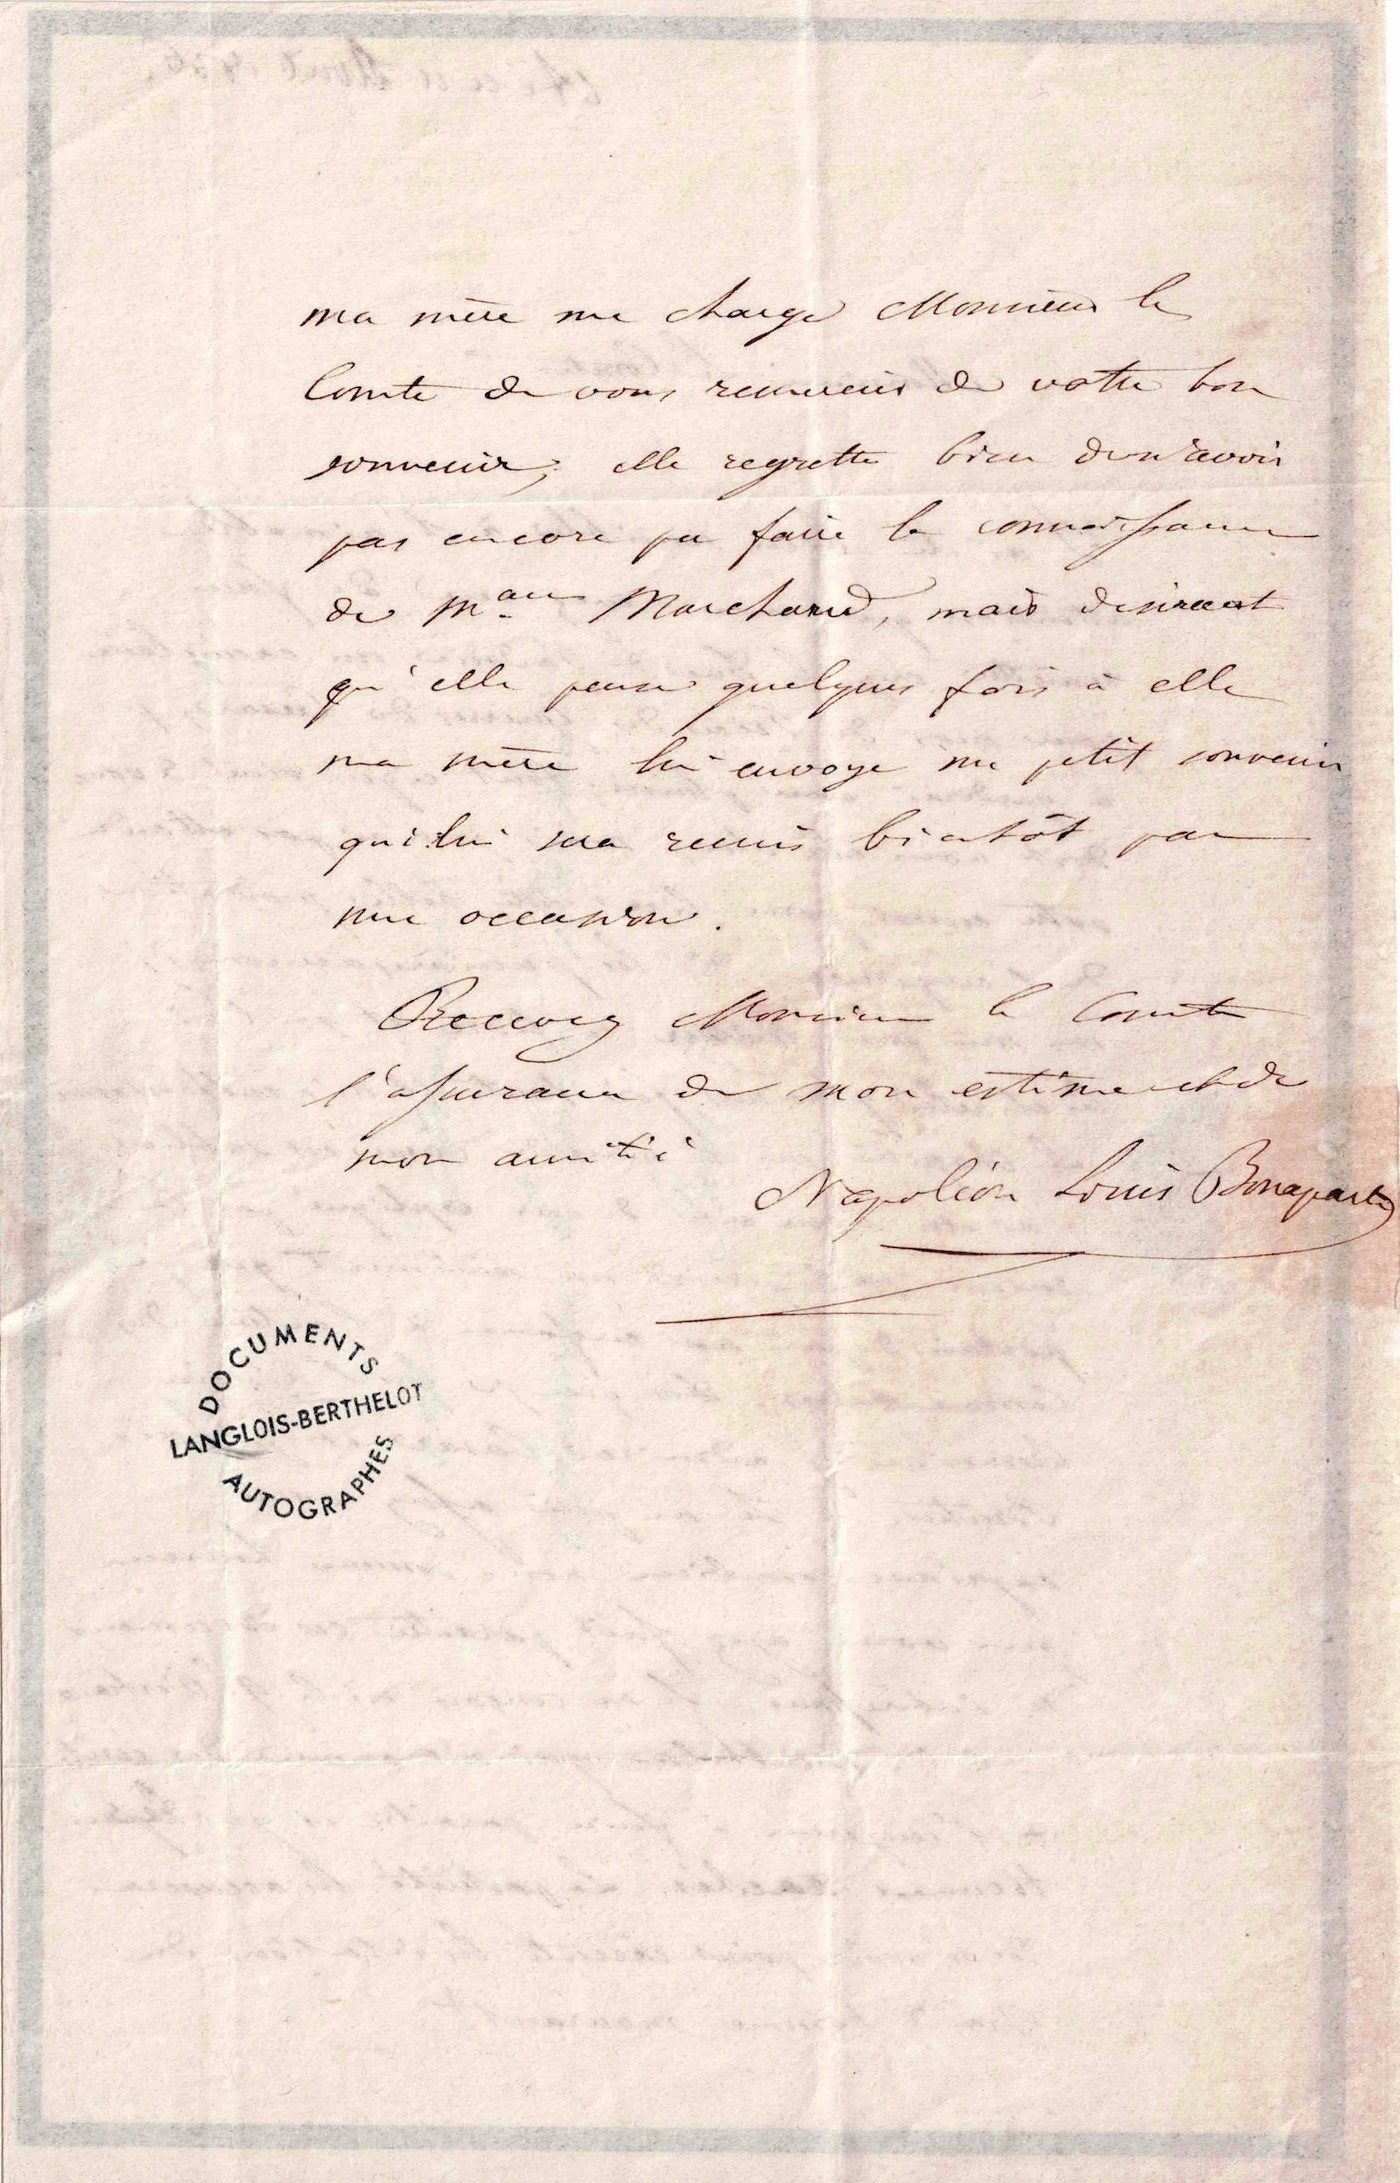 ma mère me charge Monsieur le
Comte de vous remercier de votre bon
souvenir, elle regrette bien de n'avoir
pas encore pu faire la connaissance
de Mme Marchand, mais desirant
qu'elle pense quelques fois à elle
ma mère lui envoye un petit souvenir
qui lui sera remis bientôt par
une occasion.
Recevez Monsieur le Comte
l'assurance de mon estime et de
mon amitié
Napoléon Louis Bonaparte
DOCUMENTS
LANGLOIS-BERTHELOT
AUTOGRAPHES